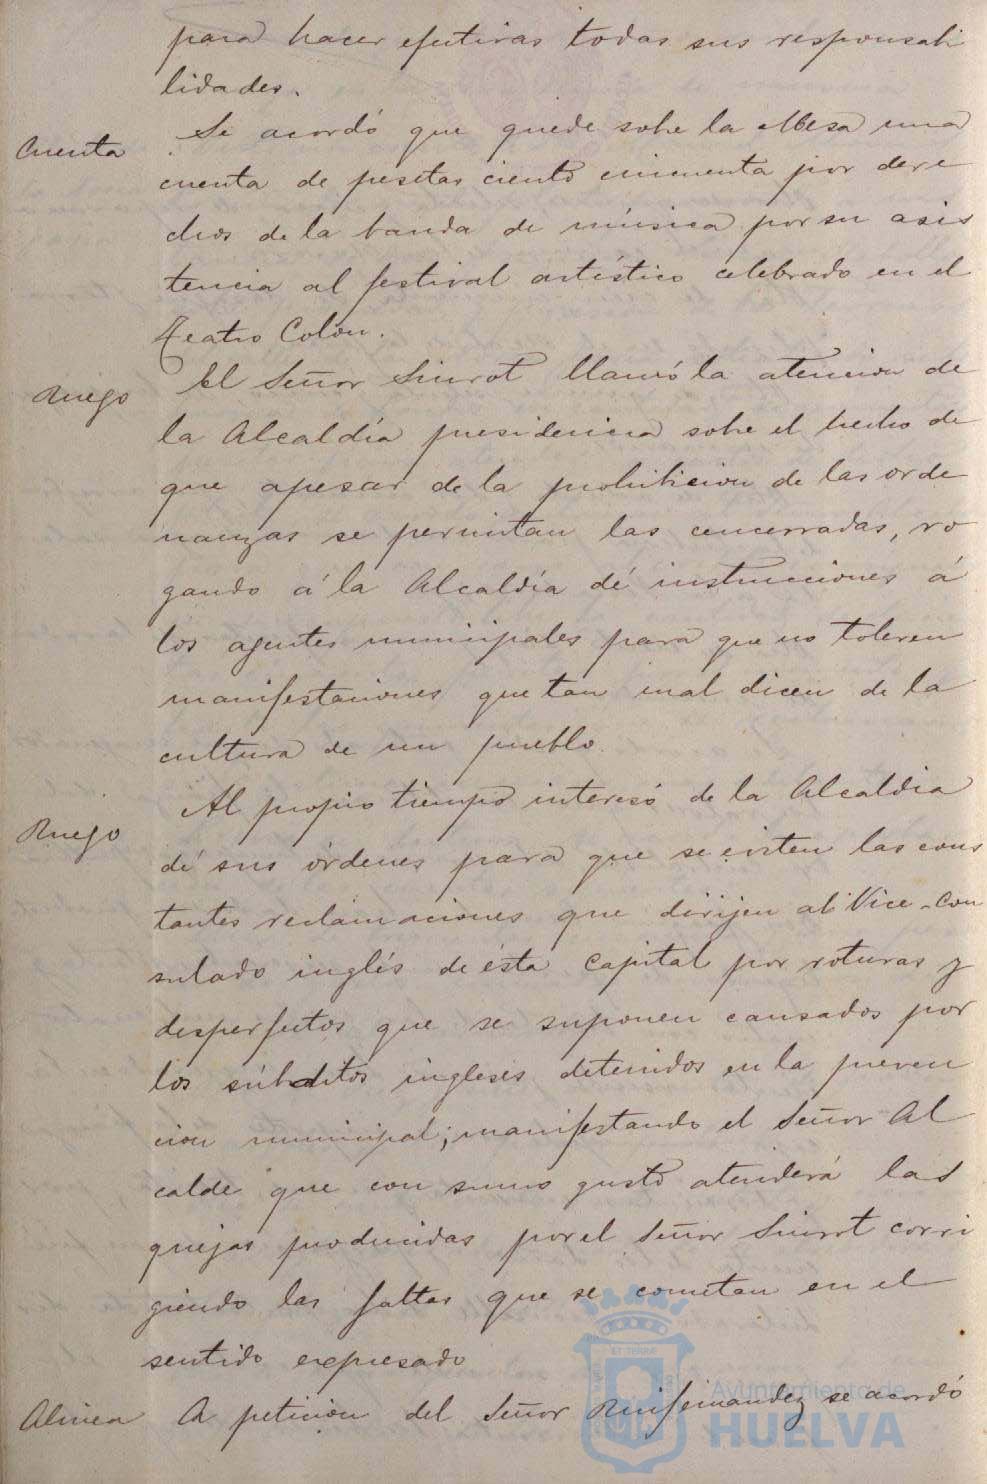 para hacer efectivas todas sus responsabi
lidades.
Cuenta
Se acordó que quede sobre la Mesa una
cuenta de pesetas ciento cincuenta por dere
chos de la banda de música por su asis
tencia al festival artístico celebrado en el
Teatro Colon.
Ruego
El Señor Siurot llamó la atencion de
la Alcaldía presidencia sobre el hecho de
que apesar de la prohibicion de las orde
nanzas se permitan las cencerradas, ro
gando á la Alcaldía dé instrucciones á
los agentes municipales para que no toleren
manifestaciones que tan mal dicen de la
cultura de un pueblo.
Ruego
Al propio tiempo interesó de la Alcaldia
dé sus órdenes para que se eviten las cons
tantes reclamaciones que dirijen al Vice-Con
sulado inglés de ésta Capital por roturas y
desperfectos que se suponen causados por
los súbditos ingleses detenidos en la preven
cion municipal; manifestando el Señor Al
calde que con sumo gusto atenderá las
quejas producidas por el Señor Siurot corri
giendo las faltas que se cometan en el
sentido expresado
Alinea
A peticion del Señor Ruifernandez se acordó
ET TERRÆ
Ayuntamiento de
HUELVA